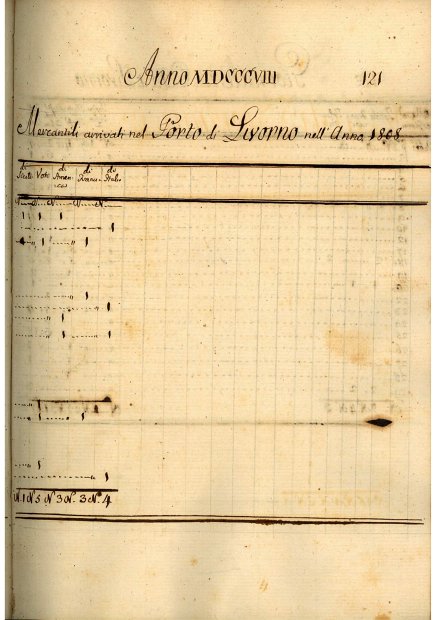 Anno MDCCCVIII 121
Mercantili arrivati nel Porto di Livorno nell'Anno 1808
di di di
Vote Ameri- Italia
ca
N. N. N. N.
1 1 1
1
1 1
1
1
1
1 1
1
1 1
1
1
N. 1 N. 5 N. 3 N. 3 N. 4